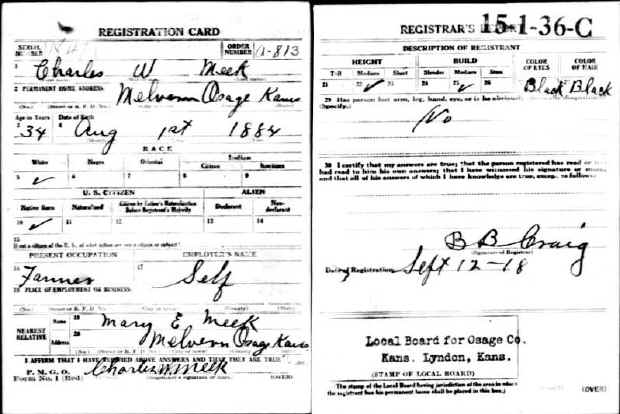 REGISTRATION CARD
SERIAL NUMBER
ORDER NUMBER A-813
1 Charles W Meek
2 PERMANENT HOME ADDRESS
Melvern Osage Kans
Age in Years Date of Birth
3 34 4 Aug 1st 1884
RACE
White Negro Oriental Indian
Citizen Noncitizen
5 ✓ 6 7 8 9
U. S. CITIZEN ALIEN
Native Born Naturalized Citizen by Father's Naturalization Before Registrant's Majority Declarant Non-declarant
10 ✓ 11 12 13 14
15
If not a citizen of the U. S., of what nation are you a citizen or subject?
PRESENT OCCUPATION EMPLOYER'S NAME
16 Farmer 17 Self
18 PLACE OF EMPLOYMENT OR BUSINESS
NEAREST RELATIVE
Name 19 Mary E Meek
Address 20 Melvern Osage Kans
I AFFIRM THAT I HAVE VERIFIED ABOVE ANSWERS AND THAT THEY ARE TRUE
P. M. G. O.
Form No. 1 (Red) Charles W. Meek
(OVER)
REGISTRAR'S 15-1-36-C
DESCRIPTION OF REGISTRANT
HEIGHT BUILD COLOR OF EYES COLOR OF HAIR
Tall Medium Short Slender Medium Stout
21 22 ✓ 23 24 25 ✓ 26 Black Black
29 Has person lost arm, leg, hand, eye, or is he obviously
(Specify.)
No
30 I certify that my answers are true; that the person registered has read or
had read to him his own answers; that I have witnessed his signature or
and that all of his answers of which I have knowledge are true, except as follows:
B B Craig
(Signature of Registrar)
Date of Registration Sept 12-18
Local Board for Osage Co.
Kans. Lyndon, Kans.
(STAMP OF LOCAL BOARD)
The stamp of the Local Board having jurisdiction of the area in which the
registrant has his permanent home shall be placed in this box.)
(OVER)